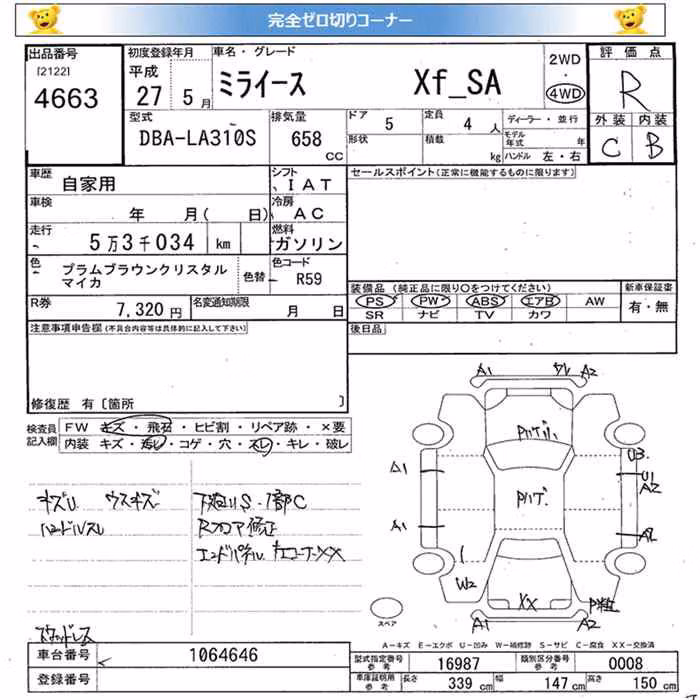 完全ゼロ切りコーナー
出品番号
[2122]
4663
初度登録年月
平成
27 5月
車名・グレード
ミライース Xf_SA
2WD
・
4WD
評価点
R
外装 内装
C B
型式
DBA-LA310S
排気量
658
CC
ドア 5
定員 4 人
形状
積載 kg
ディーラー・並行
モデル年式 年
ハンドル 左・右
車歴 自家用
シフト IAT
車検 年 月( 日)
冷房 AC
走行 5万3千034 km
燃料 ガソリン
色 プラムブラウンクリスタル
マイカ
色替
色コード R59
R券 7,320円
名変通知期限 月 日
セールスポイント(正常に機能するものに限ります)
装備品 (純正品に限り○をつけてください)
新車保証書
PS PW ABS エアB AW
有・無
SR ナビ TV カワ
後日品
注意事項申告欄(不具合内容等は具体的に記入して下さい)
修復歴 有〔箇所 〕
検査員
記入欄
FW キズ・飛石・ヒビ割・リペア跡・×要
内装 キズ・汚レ・コゲ・穴・スレ・キレ・破レ
キズU ウスキズ
ハンドルスレ
下廻りS・1部C
Rフロア修正
エンドパネル コーナーXX
スタッドレス
A1 A2
A1
A1
U3
U1
A2
A2
W2
XX
A1 A2
スペア
A-キズ E-エクボ U-凹み W-補修跡 S-サビ C-腐食 XX-交換済
車台番号 1064646
登録番号
型式指定番号 参考 16987
類別区分番号 参考 0008
車庫証明用 参考
長さ 339 cm
幅 147 cm
高さ 150 cm